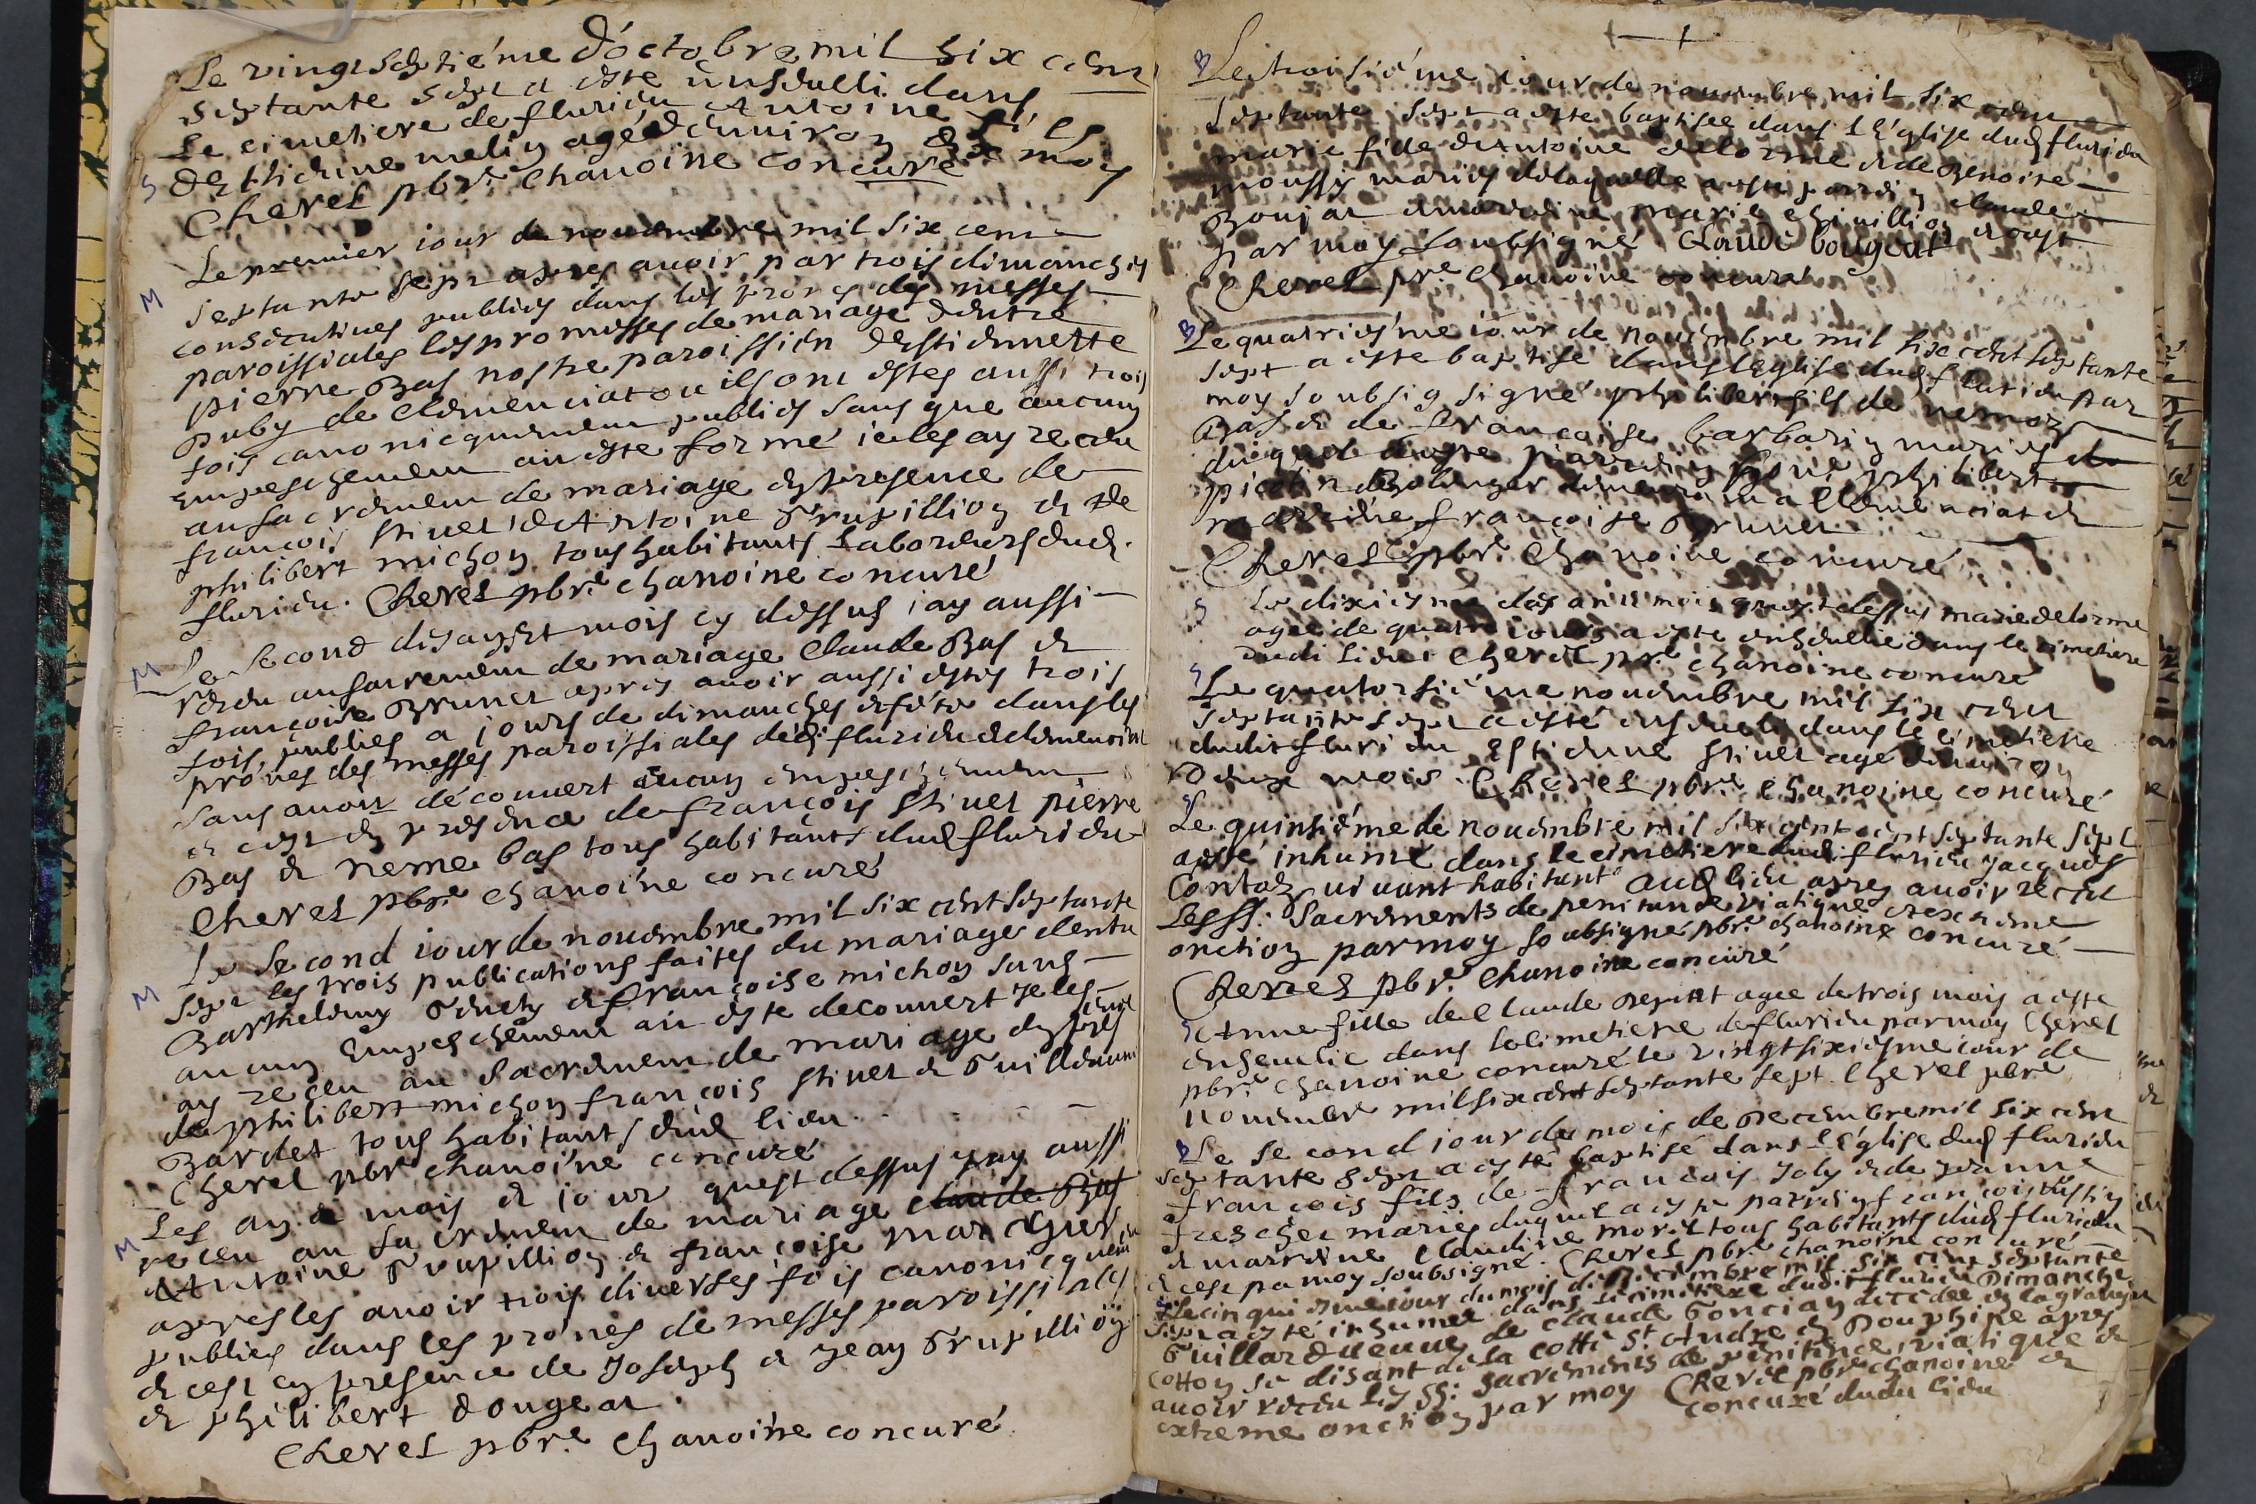 Le vingt septiéme d'octobre mil six cent
septante sept a este ensevelli dans
Le cimetiere de flurieu Antoine fils
d'Estiene melin agé d'environ dix mois
S
Cherel pbre. chanoine concuré
Le premier iour de novembre mil six cent
M
septante sept apres avoir par trois dimanches
consecutives publiés dans les prones des messes
paroissiales les promesses de mariage d'entre
pierre Bas nostre paroissien d'estiennette
puby de clemenciat ou ils ont estes aussi trois
fois canonicquement publies sans que aucun
empeschement aie este formé ie les ay receu
au sacrement de mariage en presence de
francois Stivet d'Antoine Grupillion et de
philibert michon tous habitants Laboureurs dud.
flurieu. Cherel pbre. chanoine concuré
M
Le second dis an et mois cy dessus iay aussi
receu au sacrement de mariage Claude Bas et
françoise Brunet apres avoir aussi estes trois
fois publies a jours de dimanches et féte dans les
prones des messes paroissiales dud. flurieu et clemenciat
sans avoir découvert aucun empeschement
et cest en presence de françois Stivet pierre
Bas et neme bas tous habitants dud flurieu
Cherel pbre chanoine concuré
Le second iour de novembre mil six cent septante
M
sept les trois publications faites du mariage d'entre
Barthelemy françoise michon sans
aucun empeschement aie este decouvert Je les
ay receu au sacrement de mariage en presence
de philibert michon françois Stivet et Guilleaume
Bardet tous habitants dud lieu
Cherel pbre chanoine concuré
Les an et mois et iour quest dessus jay aussi
M
receu au sacrement de mariage claude Bas
Antoine Grupillion et françoise
apres les avoir trois diverses fois canonicquement
publies dans les prónes de messes paroissiales
et cest en presence de Joseph et Jean Grupillion
et philibert dougeat.
Cherel pbre. chanoine concuré
B
Le troisiéme iour de novembre mil six cent
septante sept a este baptisee dans L'église dud flurieu
marie fille d'Antoine delorme et de Benoite
moussy maries de laquelle a este parrein claude
Boujat et marraine marie et cest
par moy soubsigné Claude bougeat
Cherel pbre chanoine concuré
B
Le quatriesme iour de novembre mil six cent septante
sept a este baptisé dans l'Eglise dud flurieu par
moy soubsig signé philibert fils de nemoz
Bas et de françoise barbarin maries
duquel a este parrein philibert
a clemenciat et
marraine françoise Brunet
Cherel pbre chanoine concuré
S
Le dixiesme des an et mois quest dessus marie delorme
agee de quatre iours a este ensevelie dans le cimetiere
dudi lieu Cherel pbre chanoine concuré
S
Le quatorsiéme novembre mil six cent
septante sept a esté enseveli dans le cimetiere
dudit flurieu Estienne Stivet agé d'environ
deux mois. Cherel pbre. chanoine concuré
S
Le quinsiéme de novembre mil six cent cent septante sept
a esté inhumé dans le cimetiere dud flurieu Jacques
Contaz vivant habitant aud lieu apres avoir receu
Les SS: Sacrements de penitance viatique et extreme
onction par moy soubsigné pbre. chanoine concuré
Cherel pbre. chanoine concuré
S
Anne fille de Claude agee de trois mois a este
ensevelie dans le cimetiere de flurieu par moy Cherel
pbre. chanoine concuré le vingt sixiesme iour de
novembre mil six cent septante sept. Cherel pbre
B
Le second iour du mois de decembre mil six cent
septante sept a esté baptisé dans L'église dud flurieu
françois fils de françois Joly et de Jeanne
freschet maries duquel a este parrein françois
et marraine Claudine morel tous habitants dud flurieu
et cest pa moy soubsigné. Cherel pbre chanoine concuré
S
Le cinquiesme iour du mois de decembre mil six cent septante
sept a esté inhumee dans le cimetiere dudit flurieu Dimanche
Guillard veuve de Claude Goncian decedee en la grange
cotton se disant de la cotte St. Andre en Douphine apres
avoir receu les SS: sacrements de penitence, viatique et
extreme onction par moy Cherel pbre chanoine et
concuré dudu lieu